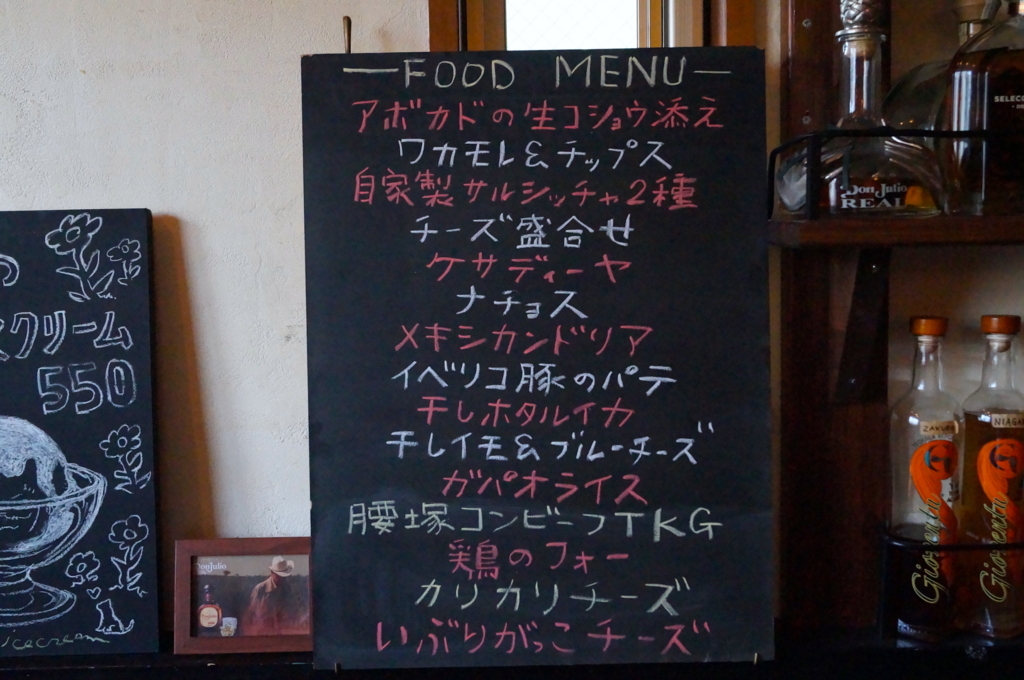 FOOD MENU
アボカドの生コショウ添え
ワカモレ&チップス
自家製サルシッチャ2種
チーズ盛合せ
ケサディーヤ
ナチョス
メキシカンドリア
イベリコ豚のパテ
干しホタルイカ
干しイモ&ブルーチーズ
ガパオライス
腰塚コンビーフTKG
鶏のフォー
カリカリチーズ
いぶりがっこチーズ
クリーム
550
icecream
Don Julio
Don Julio
REAL
Giorentu
Giorentu